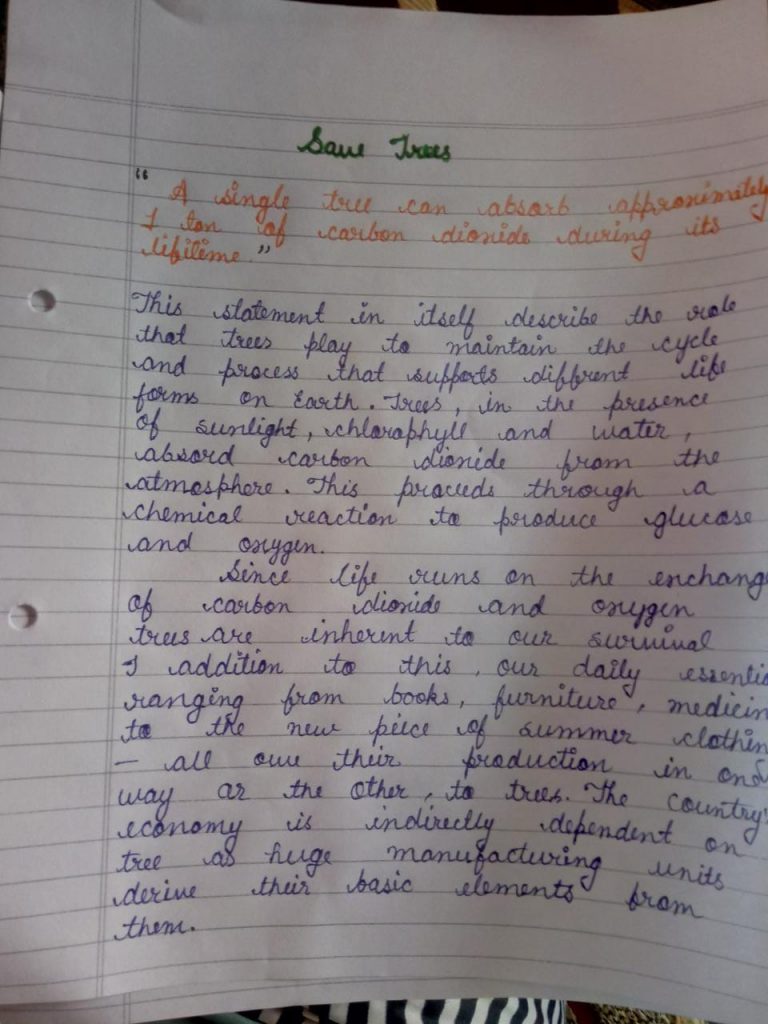 Save Trees
“ A single tree can absorb approximately
1 ton of carbon dioxide during its
lifetime.”
This statement in itself describe the role
that trees play to maintain the cycle
and process that supports diffrent life
forms on Earth. Trees, in the presence
of sunlight, chloraphyll and water,
absord carbon dioxide from the
atmosphere. This proceeds through a
chemical reaction to produce glucose
and oxygen.
Since life runs on the exchang
of carbon dioxide and oxygen
trees are inherent to our survival
I addition to this, our daily essentia
ranging from books, furniture, medicin
to the new piece of summer clothin
— all owe their production in one
way or the other, to trees. The country's
economy is indirectly dependent on
tree as huge manufacturing units
derive their basic elements from
them.